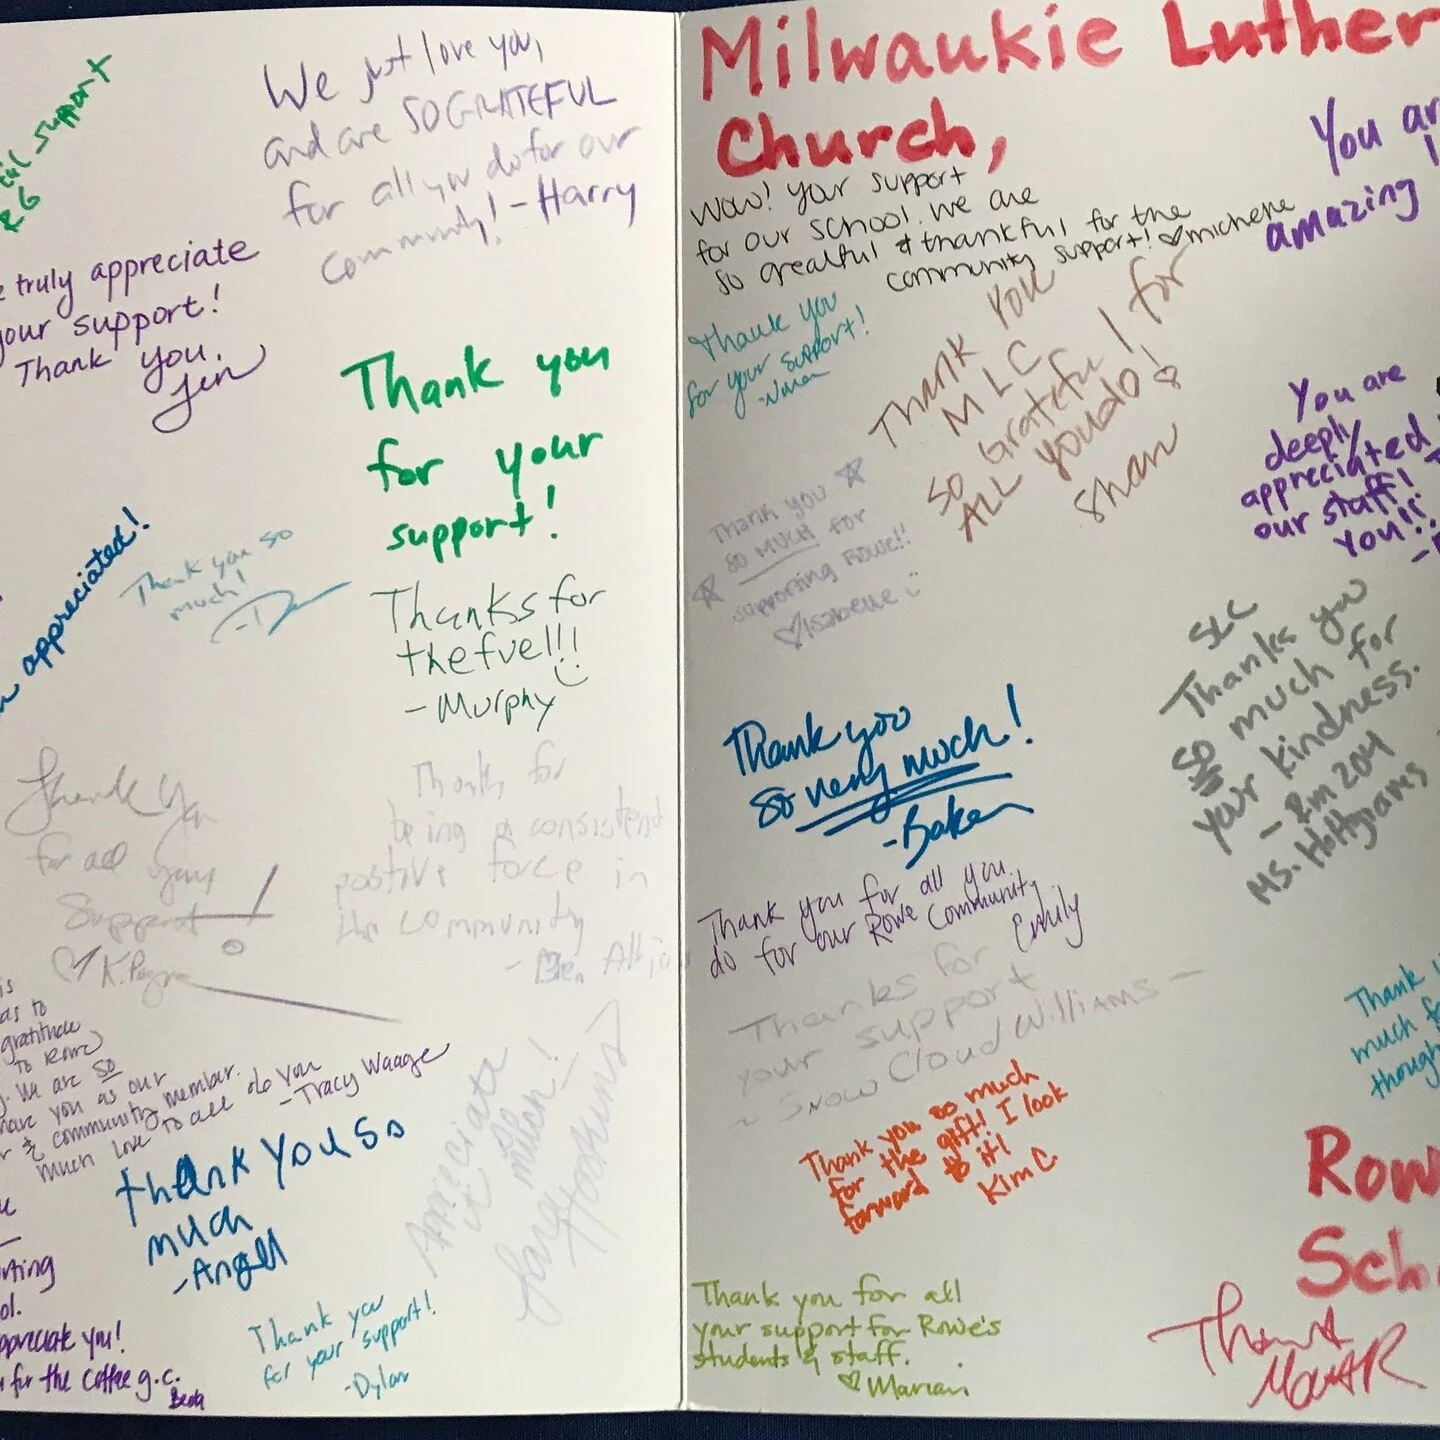 support
We just love you,
and are SO GRATEFUL
for all you do for our
community! - Harry
truly appreciate
your support!
Thank you.
Jen
Thank you
for your
support!
appreciated!
Thank you so
much!
Thanks for
the fuel!!
- Murphy
Thank you
for all your
Support!
♡ K.
Thanks for
being a consistent
positive force in
the community
- Ben
as to
gratitude
to Rowe
We are so
have you as our
& community member.
Much love to all do you
- Tracy Waage
Thank you so
much
- Angell
Appreciate
it
much!
Hoskins
ol.
appreciate you!
for the coffee g.c.
Thank you
for your support!
- Dylan
Milwaukie Luther
Church,
Wow! Your support
for our school. We are
so grealtful & thankful for the
community support! ♡ Michelle
You ar
amazing
Thank you
for your support!
Thank you
MLC
So Grateful for
ALL you do! ♡
Shan
You are
deeply
appreciated
our staff!
You!!
Thank you ☆
☆ so much for
supporting Rowe!!
♡ Isabelle
SLC
Thanks you
so much for
your kindness.
- Rm 204
Ms.
Thank you
so very much!
- Baker
Thank you for all you
do for our Rowe Community.
Emily
Thanks for
your support
~ Snow Cloud Williams -
Thank
much fo
though
Thank you so much
for the gift! I look
forward to it!
Kim C.
Row
Sch
Thank you for all
your support for Rowe's
students & staff.
♡ Marian